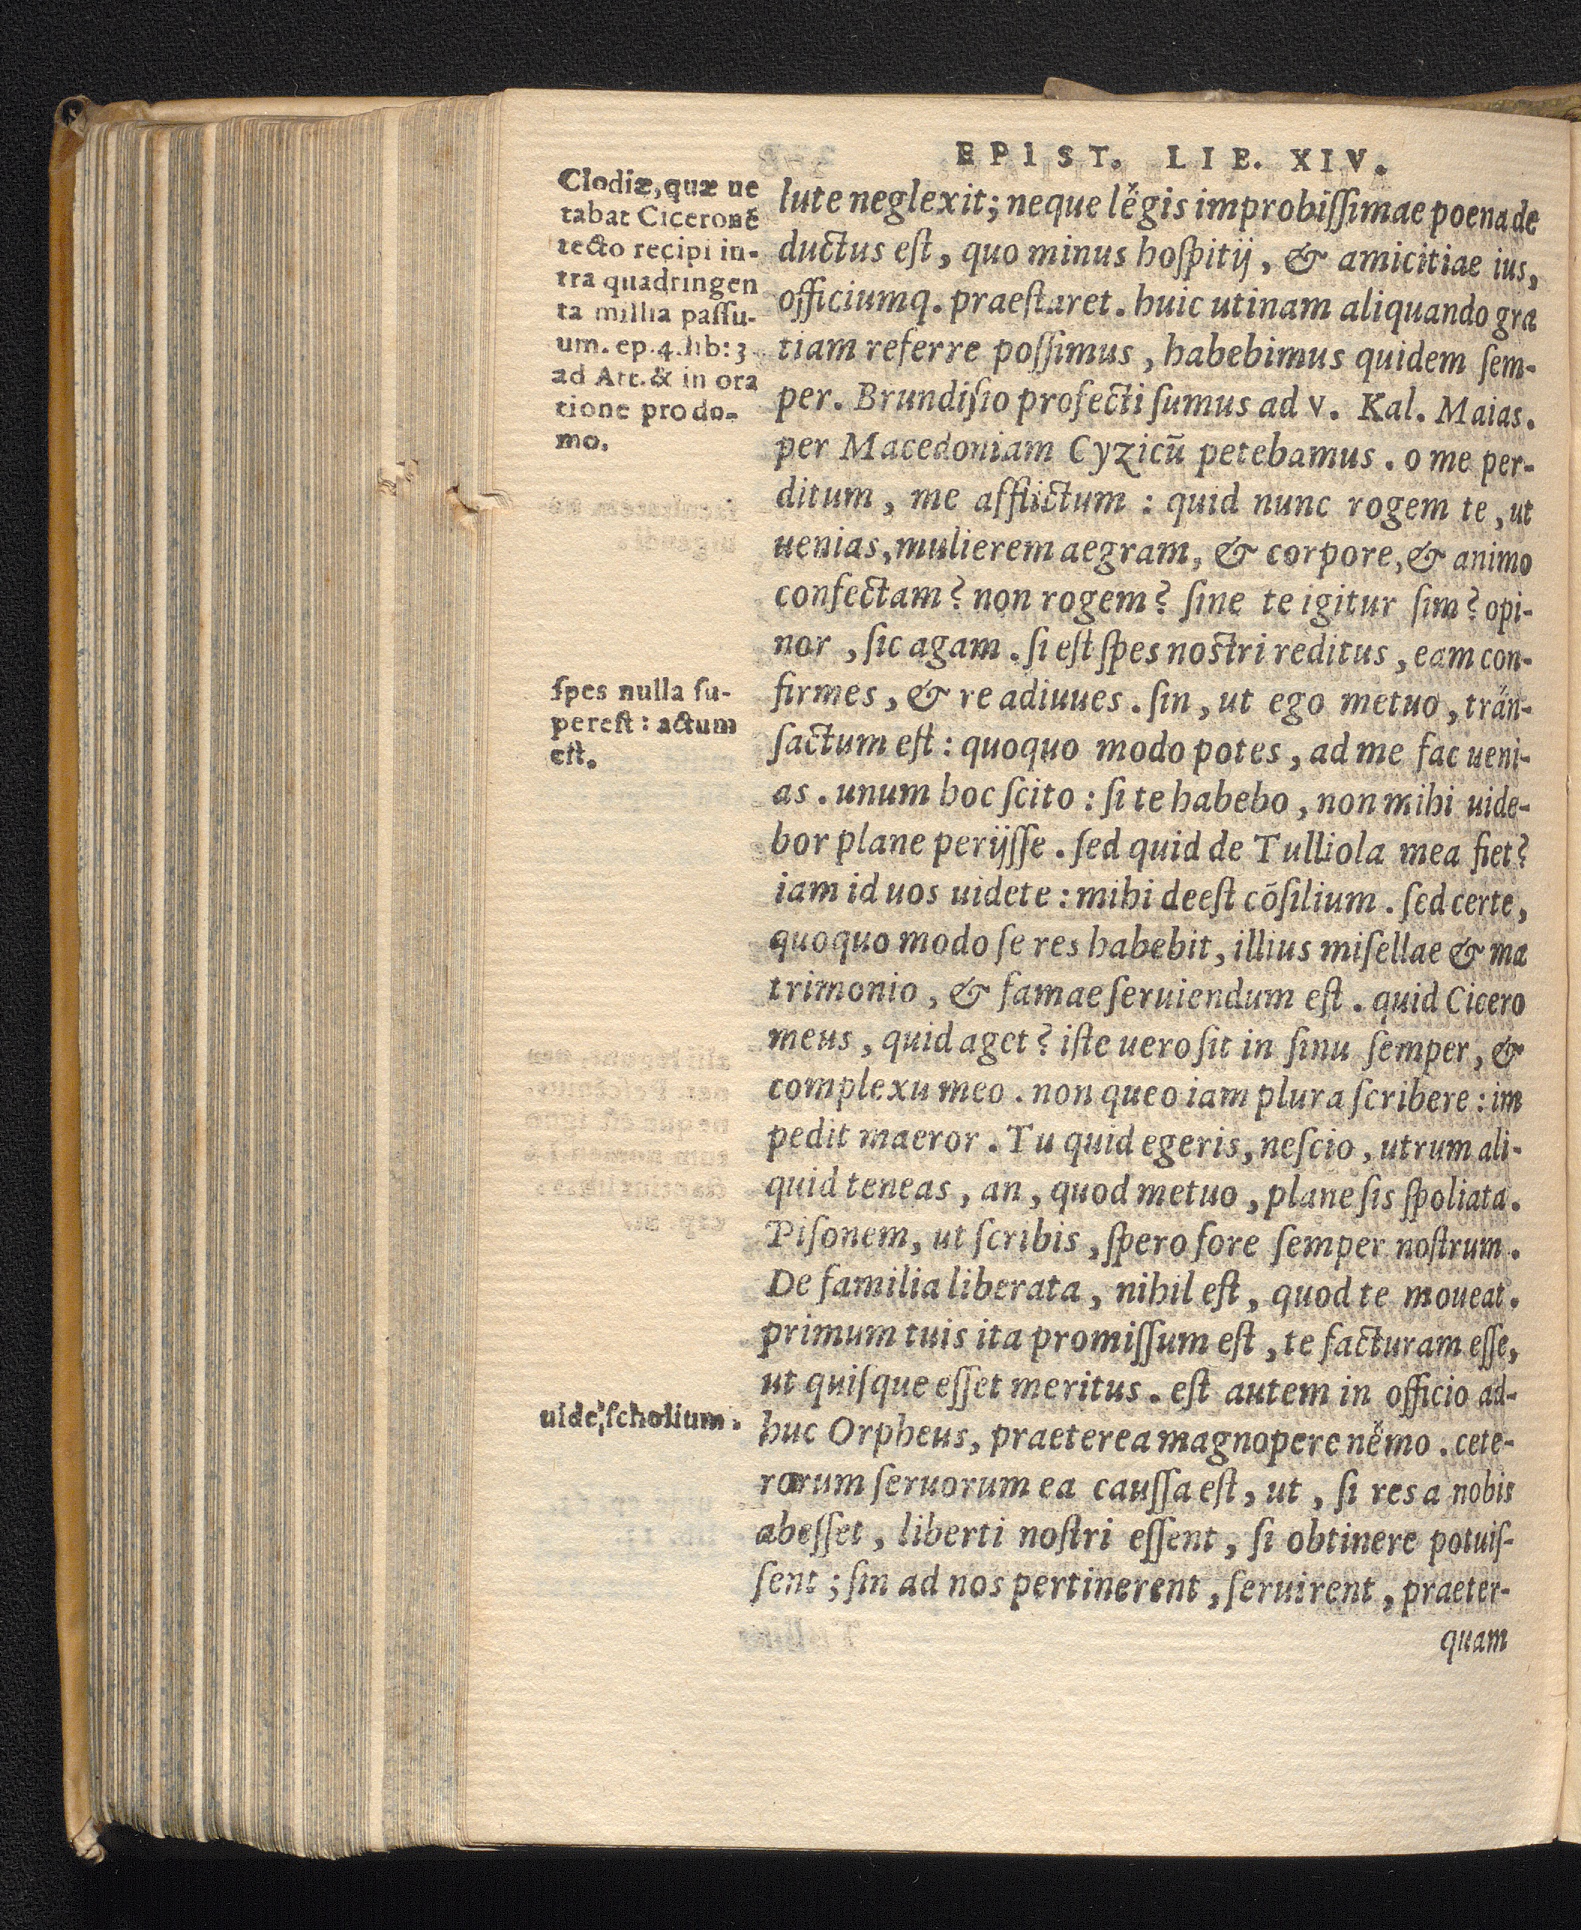 EPIST. LIE. XIV.
Clodiæ, quæ ue
tabat Ciceronē
tecto recipi in-
tra quadringen
ta millia passu-
um. ep. 4. lib: 3
ad Att. & in ora
tione pro do-
mo.
spes nulla su-
perest: actum
est.
uide, scholium.
lute neglexit; neque lēgis improbissimae poena de
ductus est, quo minus hospitij, & amicitiae ius,
officiumq. praestaret. huic utinam aliquando gra
tiam referre possimus, habebimus quidem sem-
per. Brundisio profecti sumus ad V. Kal. Maias.
per Macedoniam Cyzicū petebamus. o me per-
ditum, me afflictum: quid nunc rogem te, ut
uenias, mulierem aegram, & corpore, & animo
confectam? non rogem? sine te igitur sim? opi-
nor, sic agam. si est spes nostri reditus, eam con-
firmes, & re adiuues. sin, ut ego metuo, trán-
sactum est: quoquo modo potes, ad me fac ueni-
as. unum hoc scito: si te habebo, non mihi uide-
bor plane perijsse. sed quid de Tulliola mea fiet?
iam id uos uidete: mihi deest cōsilium. sed certe,
quoquo modo se res habebit, illius misellae & ma
trimonio, & famae seruiendum est. quid Cicero
meus, quid aget? iste uero sit in sinu semper, &
complexu meo. non queo iam plura scribere: im
pedit maeror. Tu quid egeris, nescio, utrum ali-
quid teneas, an, quod metuo, plane sis spoliata.
Pisonem, ut scribis, spero fore semper nostrum.
De familia liberata, nihil est, quod te moueat.
primum tuis ita promissum est, te facturam esse,
ut quisque esset meritus. est autem in officio ad-
huc Orpheus, praeterea magnopere nēmo. cete-
rorum seruorum ea caussa est, ut, si res a nobis
abesset, liberti nostri essent, si obtinere potuis-
sent; sin ad nos pertinerent, seruirent, praeter-
quam